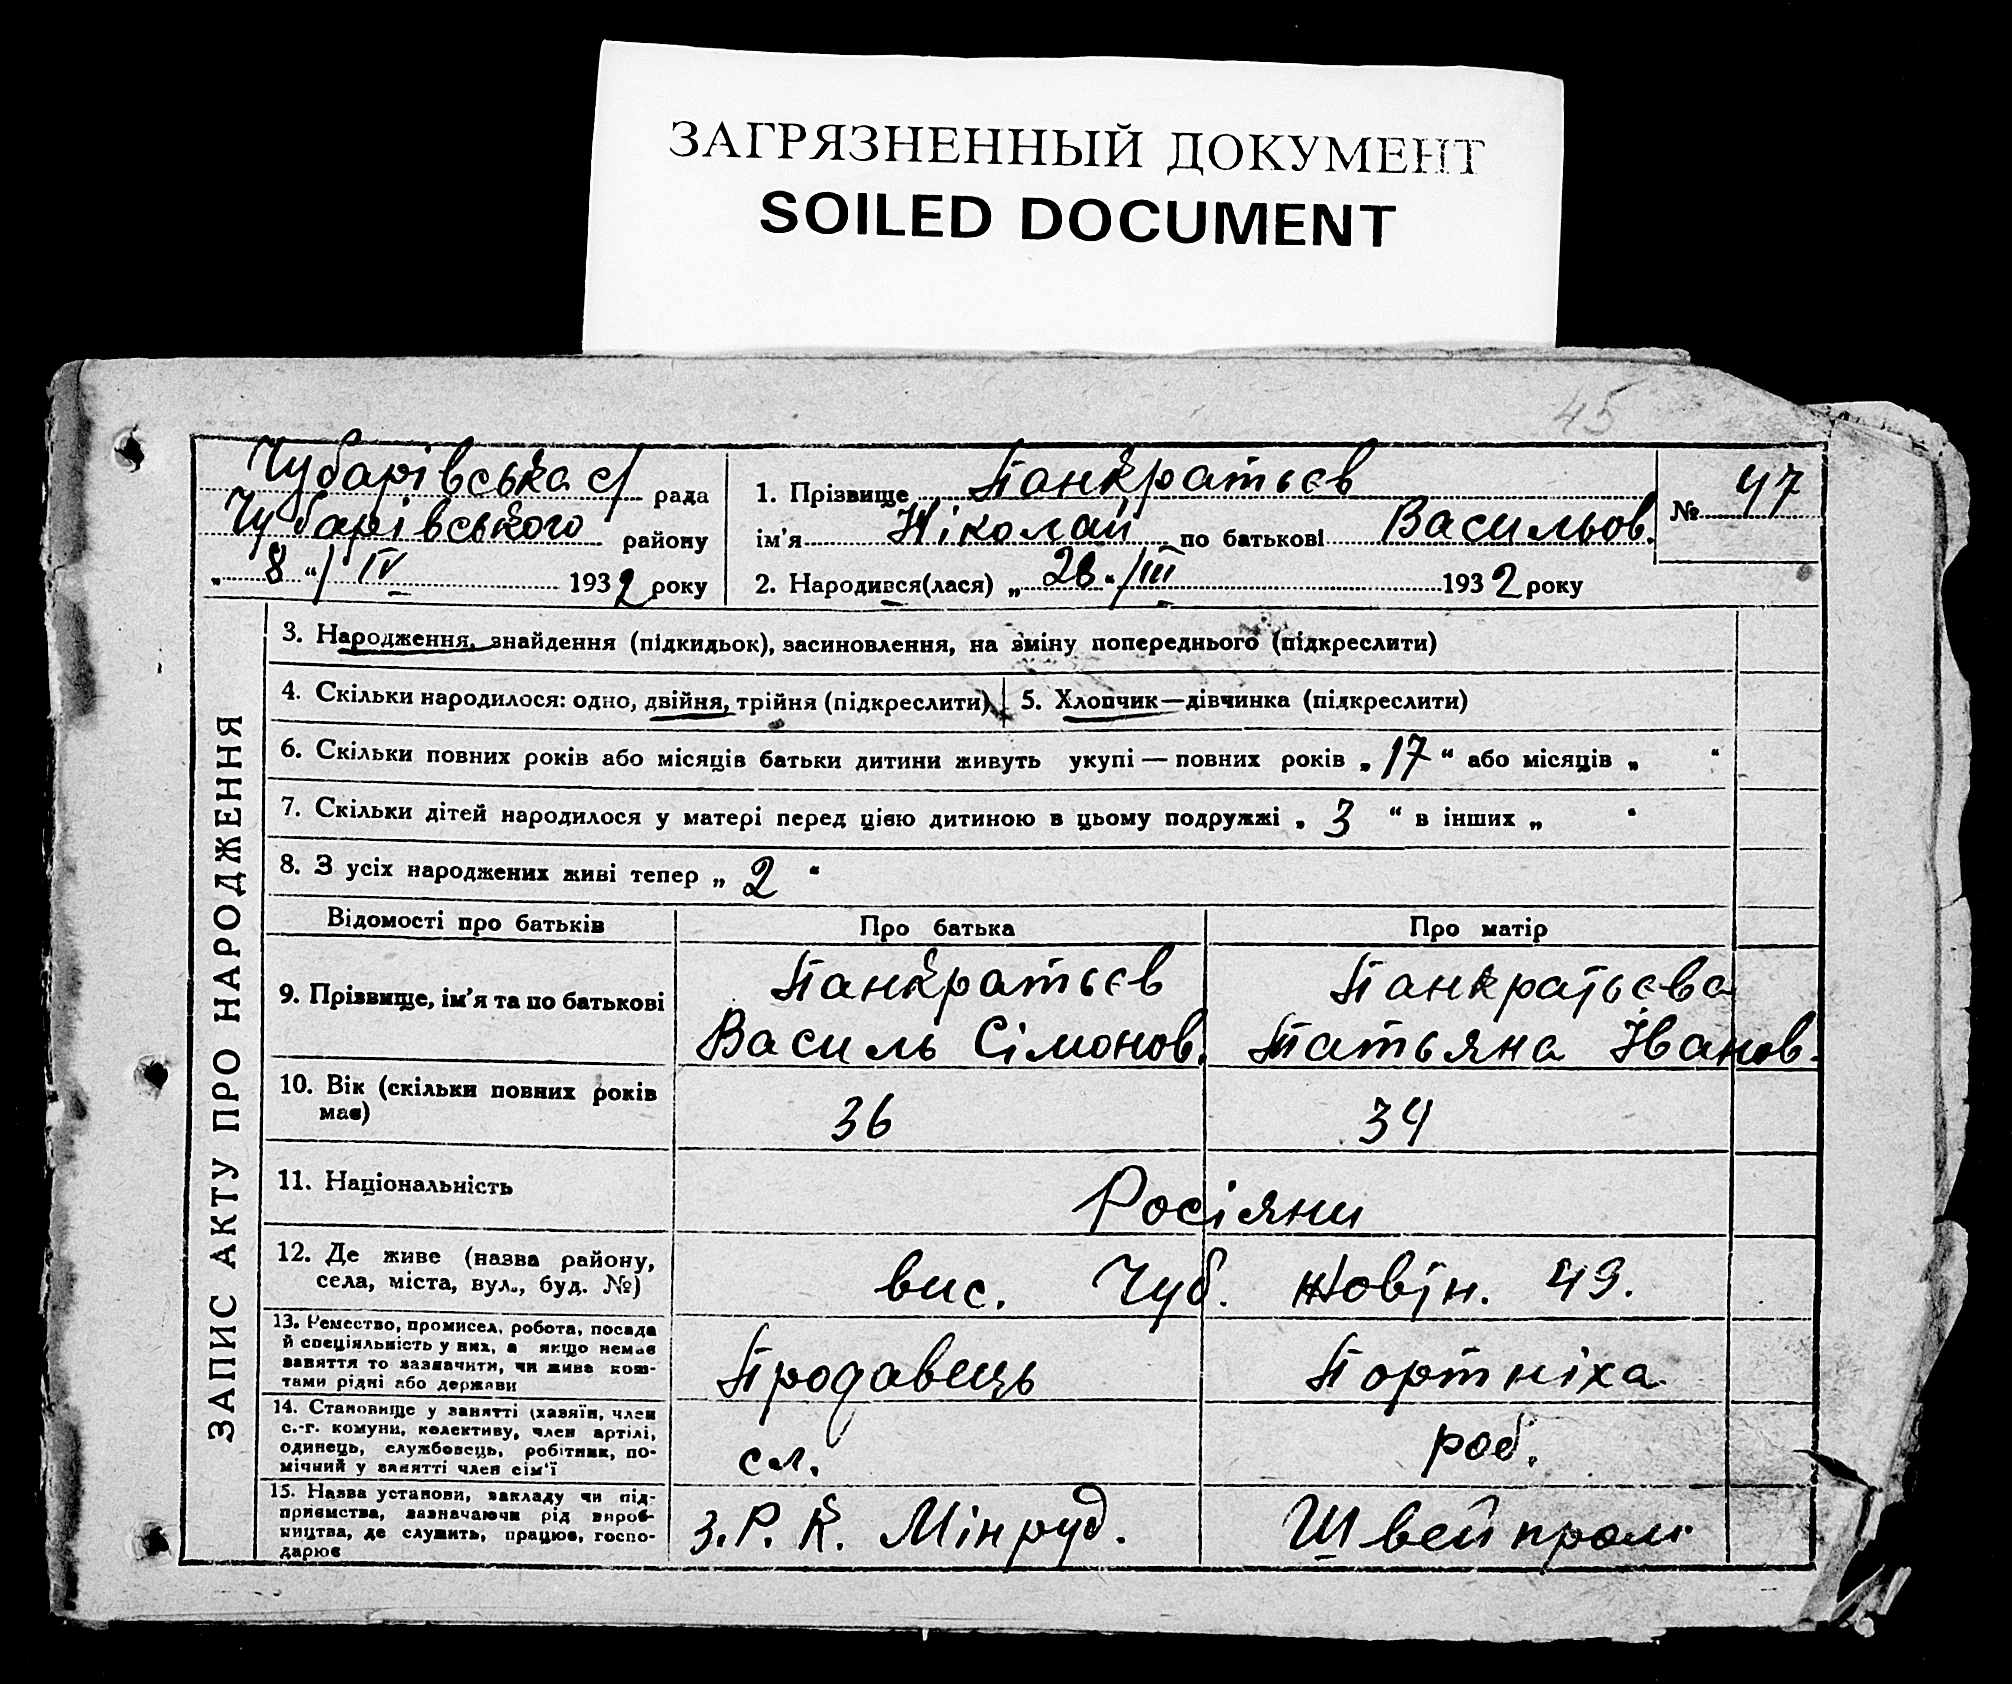 ЗАГРЯЗНЕННЫЙ ДОКУМЕНТ
SOILED DOCUMENT
45
Чубарівська с/ рада
Чубарівського району
„ 8 “/ IV 1932 року
1. Прізвище Панкратьєв
ім’я Ніколай по батькові Васильов.
2. Народився(лася) „ 28 “/III 1932 року
№ 47
ЗАПИС АКТУ ПРО НАРОДЖЕННЯ
3. Народження, знайдення (підкидьок), засиновлення, на зміну попереднього (підкреслити)
4. Скільки народилося: одно, двійня, трійня (підкреслити)
5. Хлопчик—дівчинка (підкреслити)
6. Скільки повних років або місяців батьки дитини живуть укупі — повних років „ 17 “ або місяців „ “
7. Скільки дітей народилося у матері перед цією дитиною в цьому подружжі „ 3 “ в інших „ “
8. З усіх народжених живі тепер „ 2 “
Відомості про батьків Про батька Про матір
9. Прізвище, ім’я та по батькові
Панкратьєв
Василь Сімонов.
Панкратьєва
Татьяна Іванов.
10. Вік (скільки повних років
має)
36 34
11. Національність
Росіяни
12. Де живе (назва району,
села, міста, вул., буд. №)
вис. Чуб. Жовтн. 43.
13. Ремество, промисел, робота, посада
й спеціяльність у них, а якщо немає
заняття то зазначити, чи живе кош-
тами рідні або держави
Продавець Портніха
14. Становище у занятті (хазяїн, член
с.-г. комуни, колективу, член артілі,
одинець, службовець, робітник, по-
мічний у занятті член сім’ї
сл. роб.
15. Назва установи, закладу чи під-
приємства, зазначаючи рід вироб-
ництва, де служить, працює, госпо-
дарює
З.Р.К. Мінруд. Швейпром